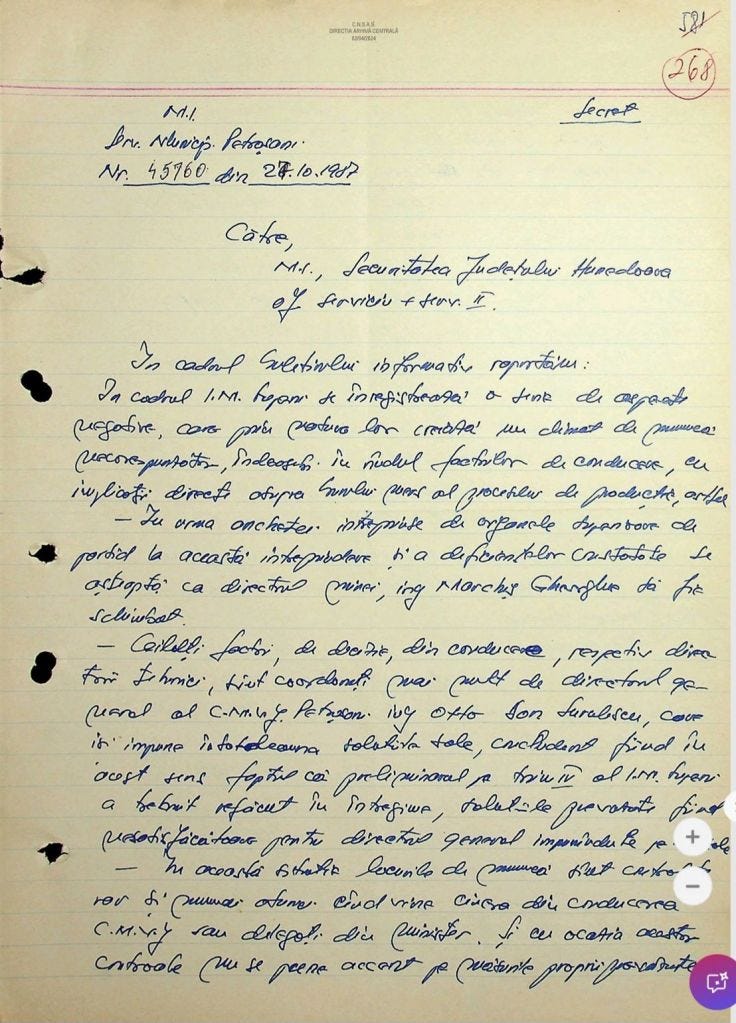 C.N.S.A.S.
DIRECȚIA ARHIVĂ CENTRALĂ
581
268
M.I. Secret
Serv. Municip. Petroșani
Nr. 45760 din 27.10.1987
Către,
M.I., Securitatea Județului Hunedoara
of serviciu + serv. II.
În cadrul buletinului informativ raportăm:
În cadrul I.M. Lupeni se înregistrează o serie de aspecte
negative, care prin natura lor crează un climat de muncă
necorespunzător, îndeosebi în rîndul factorilor de conducere, cu
implicații directe asupra bunului mers al procesului de producție, astfel
– În urma anchetei întreprinse de organele superioare de
partid la această întreprindere și a deficiențelor constatate se
așteaptă ca directorul minei, ing Marchiș Gheorghe să fie
schimbat.
– Ceilalți factori, de decizie, din conducere, respectiv direc
torii tehnici, sînt coordonați mai mult de directorul ge-
neral al C.M.V.J. Petroșani ing Otto Dan Surulescu, care
își impune întotdeauna soluțiile sale, concludent fiind în
acest sens faptul că preliminarul pe trim IV al I.M. Lupeni
a trebuit refăcut în întregime, soluțiile prevăzute fiind
nesatisfăcătoare pentru directorul general impunîndu-le pe
– În această situație locurile de muncă sînt
rar și numai atunci cînd vine cineva din conducerea
C.M.V.J sau delegați din minister. Și cu ocazia acestor
controale nu se pune accent pe măsurile proprii